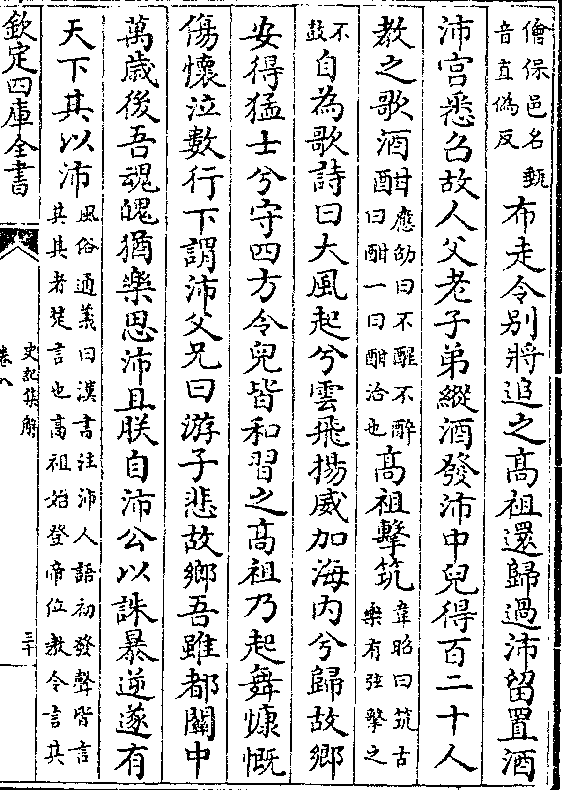 儈保邑名 甀
音直偽反
布走令别將追之高祖還歸過沛留置酒
沛宫悉召故人父老子弟縱酒發沛中兒得百二十人
教之歌酒酣
應劭曰不醒不醉
曰酣一曰酣洽也
高祖擊筑
韋昭曰筑古
樂有弦擊之
不
鼓
自為歌詩曰大風起兮雲飛揚威加海内兮歸故鄉
安得猛士兮守四方令兒皆和習之高祖乃起舞慷慨
傷懷泣數行下謂沛父兄曰游子悲故鄉吾雖都闗中
萬歲後吾魂魄猶樂思沛且朕自沛公以誅暴逆遂有
天下其以沛
風俗通義曰漢書注沛人語初發聲皆言
其其者楚言也高祖始登帝位教令言其
欽定四庫全書
史記集解
卷八
三十